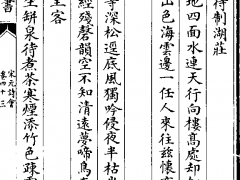 待制湖莊
地四面水連天行向樓高處却
山色海雲邊一任人來往兹懷
寺深松逕底風獨吟侵夜半枯
經殘磬韻空不知清遠夢啼鳥
主客
生缾泉待煮茶寒煙添竹色疎
書
宋元詩會
卷四十三